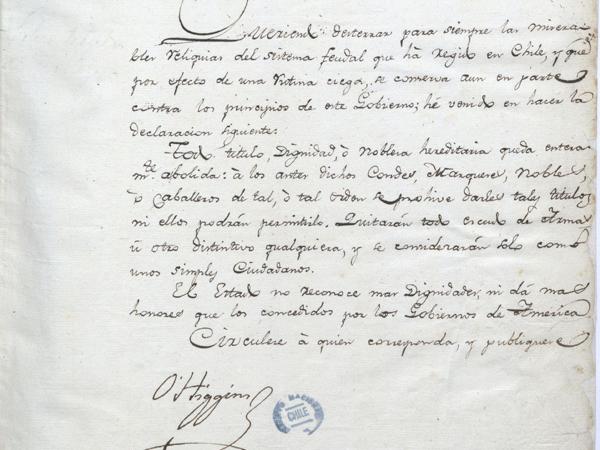 Queriendo desterrar para siempre las misera-
bles reliquias del sistema feudal que ha regido en Chile, y que
por efecto de una rutina ciega, se conserva aun en parte
contra los principios de este Gobierno; hé venido en hacer la
declaracion siguiente:
Todo titulo, Dignidad, ò Nobleza hereditaria queda entera
mte abolida: à los antes dichos Condes, Marqueses, Nobles,
ò Caballeros de tal, ò tal orden se prohive darles tales titulos,
ni ellos podrán permitirlo. Quitarán todo escudo de Armas
ù otro distintivo qualquiera, y se considerarán solo como
unos simples Ciudadanos.
El Estado no reconoce mas Dignidades, ni dá mas
honores que los concedidos por los Gobiernos de America.
Circulese à quien corresponda, y publiquese
O'Higgins
CHILE